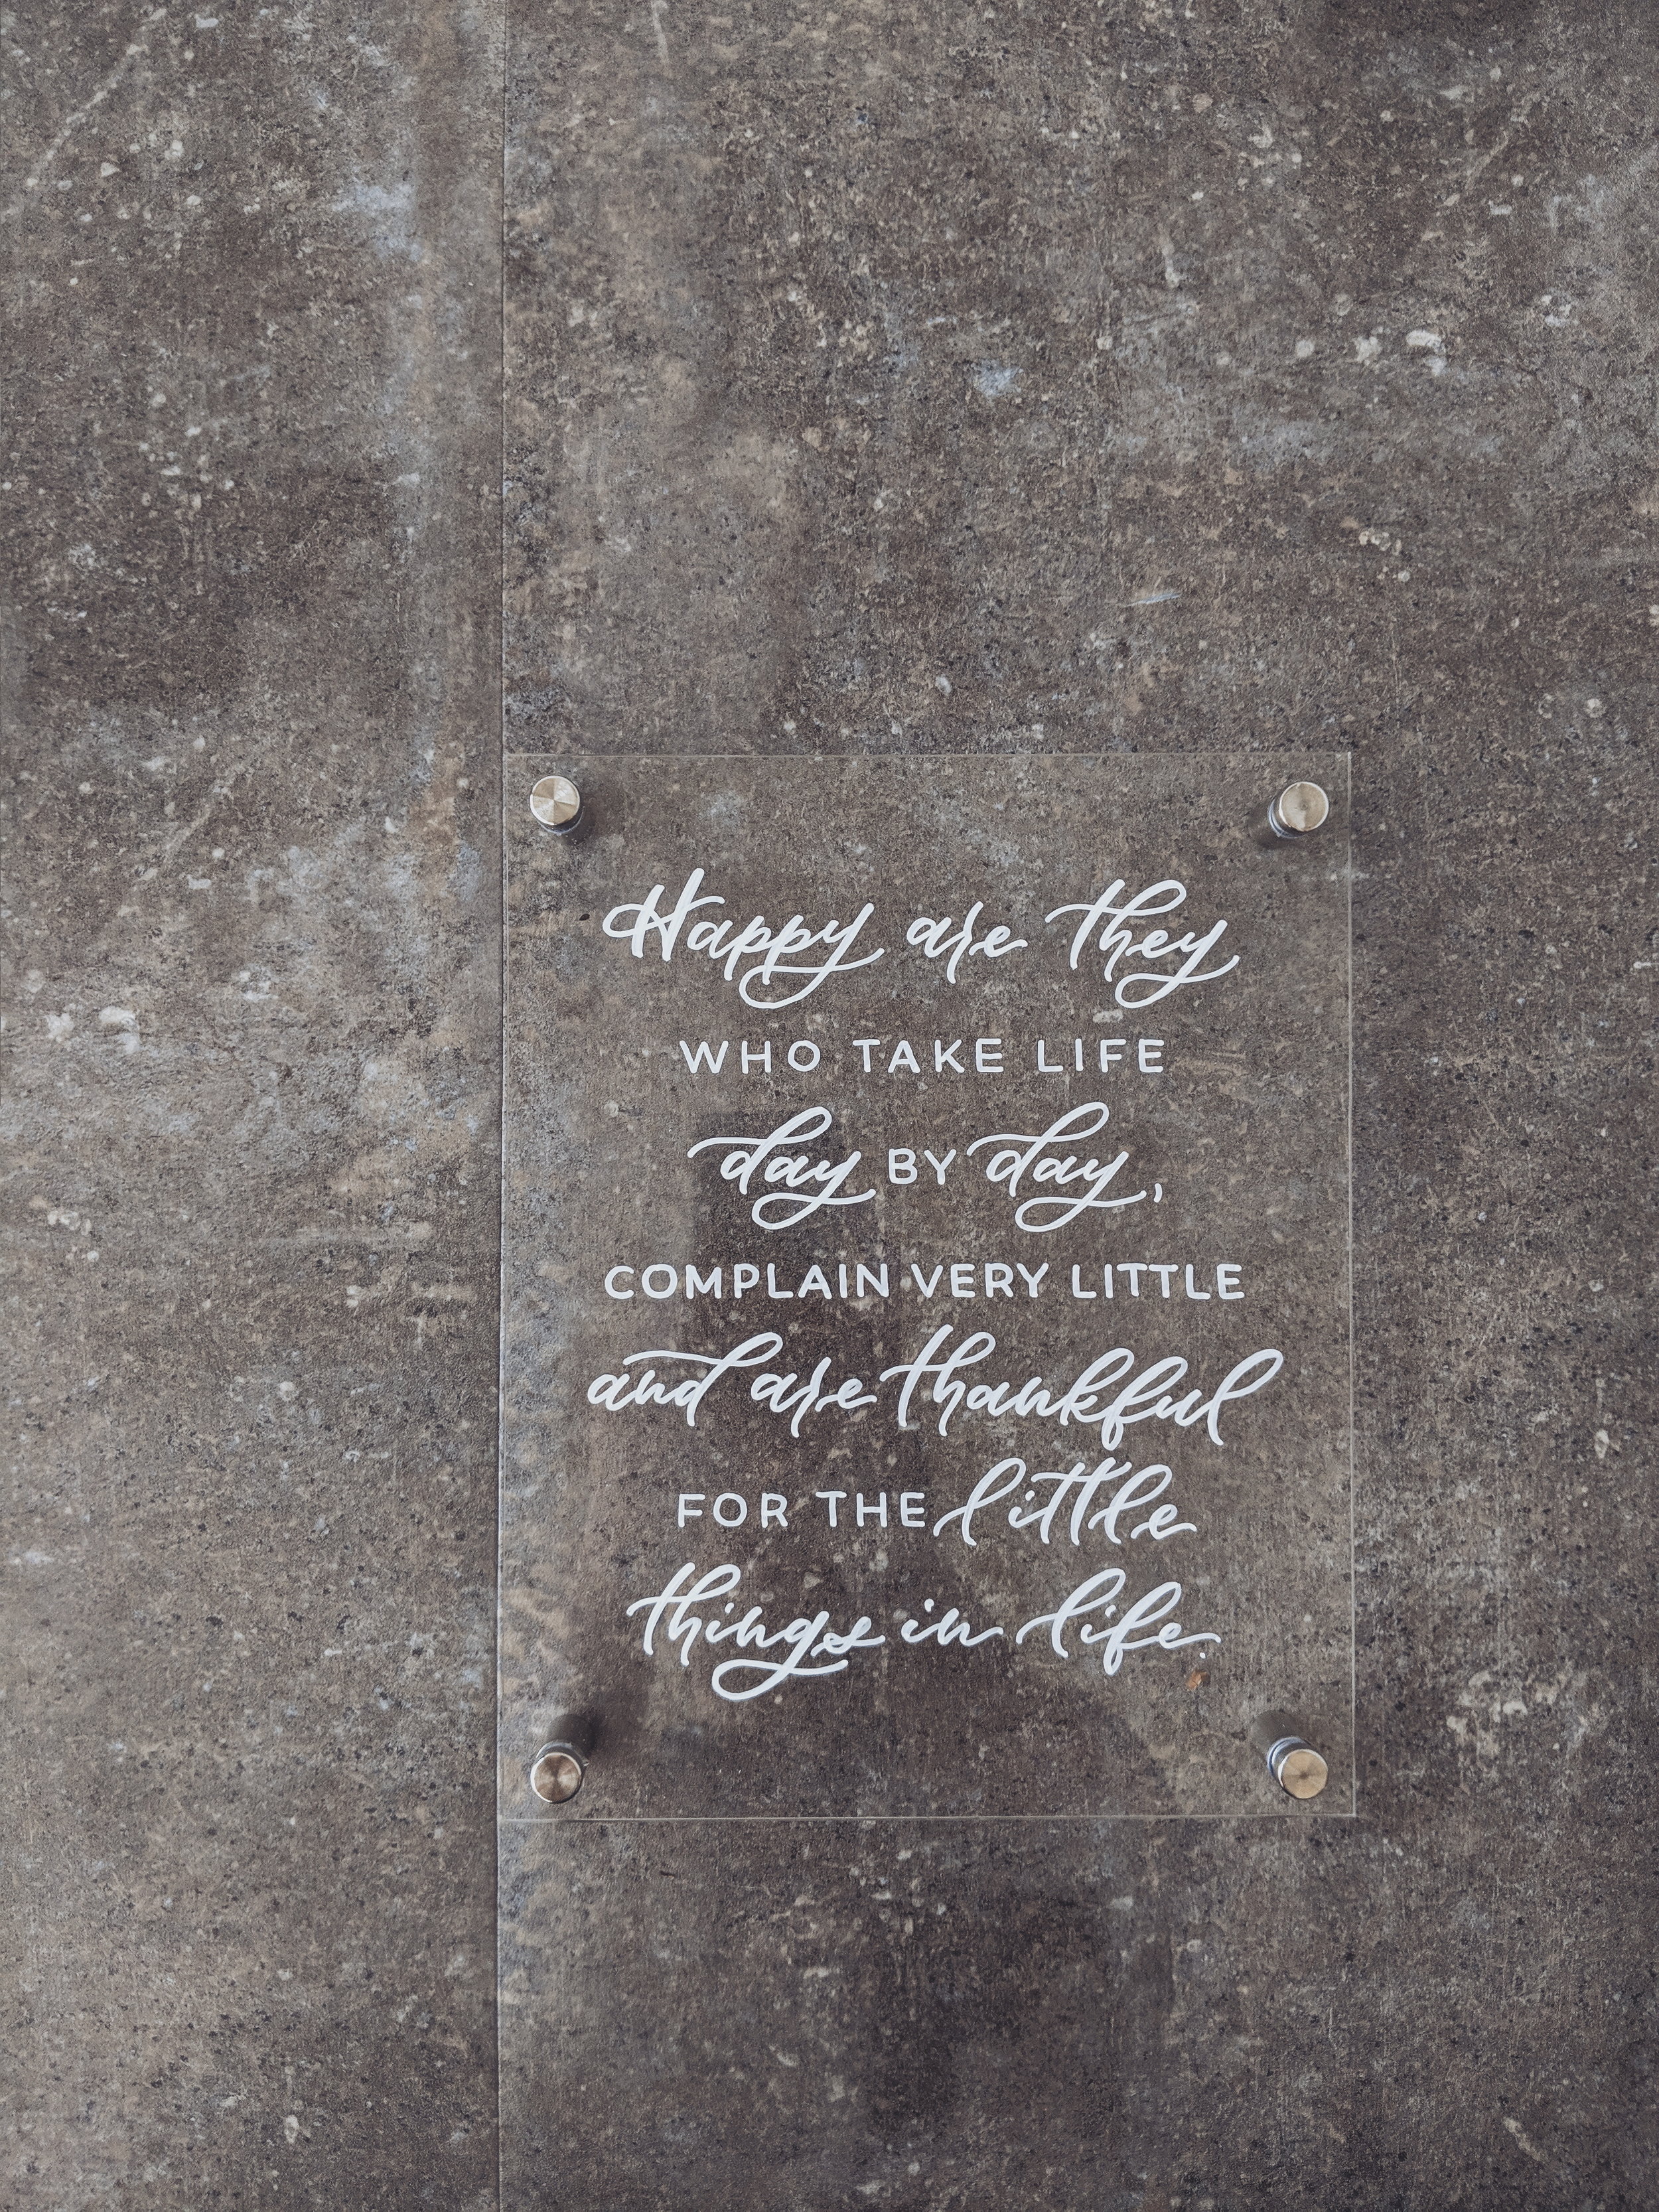 Happy are they
WHO TAKE LIFE
day BY day,
COMPLAIN VERY LITTLE
and are thankful
FOR THE little
things in life.